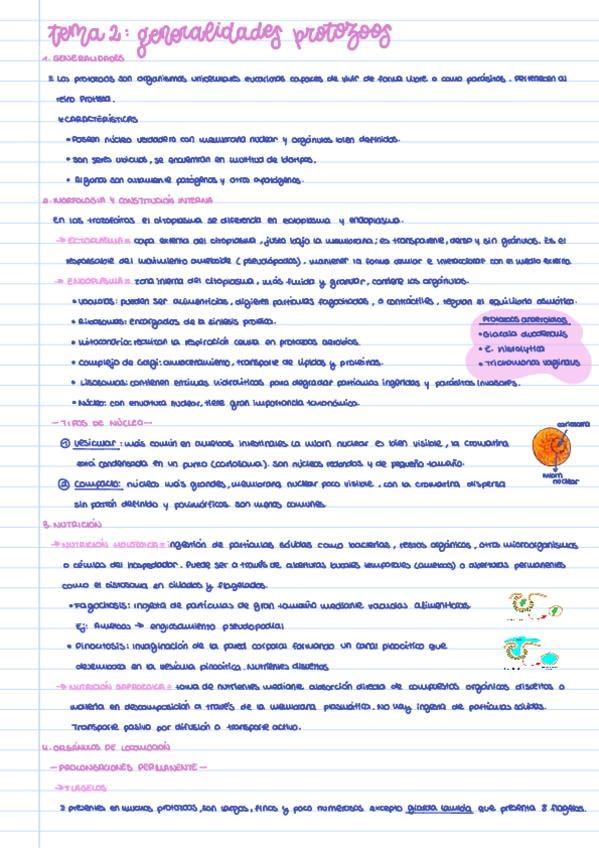 tema 2: generalidades protozoos
1. GENERALIDADES
Los protozoos son organismos unicelulares eucariotas capaces de vivir de forma libre o como parásitos. Pertenecen al
reino Protista.
CARACTERÍSTICAS
• Poseen núcleo verdadero con membrana nuclear y orgánulos bien definidos.
• Son seres ubicuos, se encuentran en multitud de biotipos.
• Algunos son altamente patógenos y otros apatógenos.
2. MORFOLOGÍA Y CONSTITUCIÓN INTERNA
En los trofozoítos el citoplasma se diferencia en ectoplasma y endoplasma.
→ ECTOPLASMA = capa externa del citoplasma, justo bajo la membrana; es transparente, denso y sin gránulos. Es el
responsable del movimiento ameboide (pseudópodos), mantener la forma celular e interaccionar con el medio externo.
→ ENDOPLASMA = zona interna del citoplasma, más fluida y granular, contiene los orgánulos.
• Vacuolas: pueden ser alimenticias, digieren partículas fagocitadas, o contráctiles, regulan el equilibrio osmótico.
• Ribosomas: encargados de la síntesis proteica.
• Mitocondria: realizan la respiración celular en protozoos aerobios.
• Complejo de Golgi: almacenamiento, transporte de lípidos y proteínas.
Protozoos anaerobios
• Giardia duodenalis
• E. histolytica
• Trichomonas vaginalis
• Lisosomas: contienen enzimas hidrolíticas para degradar partículas ingeridas y parásitos invasores.
• Núcleo: con envoltura nuclear, tiene gran importancia taxonómica.
- TIPOS DE NÚCLEO -
① Vesicular: más común en amebas intestinales la mbrn nuclear es bien visible, la cromatina
está condensada en un punto (cariosoma). Son núcleos redondos y de pequeño tamaño.
cariosoma
mbrn
nuclear
② Compacto: núcleos más grandes, membrana nuclear poco visible, con la cromatina dispersa
sin patrón definido y polimórficos. Son menos comunes
3. NUTRICIÓN
→ NUTRICIÓN HOLOZOICA = ingestión de partículas sólidas como bacterias, restos orgánicos, otros microorganismos
o células del hospedador. Puede ser a través de aberturas bucales temporales (amebas) o aberturas permanentes
como el citostoma en ciliados y flagelados.
• Fagocitosis: ingesta de partículas de gran tamaño mediante vacuolas alimentarias
Ej: Amebas → englobamiento pseudopodial
• Pinocitosis: invaginación de la pared corporal formando un canal pinocítico que
desemboca en la vesícula pinocítica. Nutrientes disueltos
→ NUTRICIÓN SAPROZOICA = toma de nutrientes mediante absorción directa de compuestos orgánicos disueltos o
materia en descomposición a través de la membrana plasmática. No hay ingesta de partículas sólidas.
Transporte pasivo por difusión o transporte activo.
4. ORGÁNULOS DE LOCOMOCIÓN
- PROLONGACIONES PERMANENTE -
→ FLAGELOS
presentes en muchos protozoos, son largos, finos y poco numerosos excepto giardia lamblia que presenta 8 flagelos.